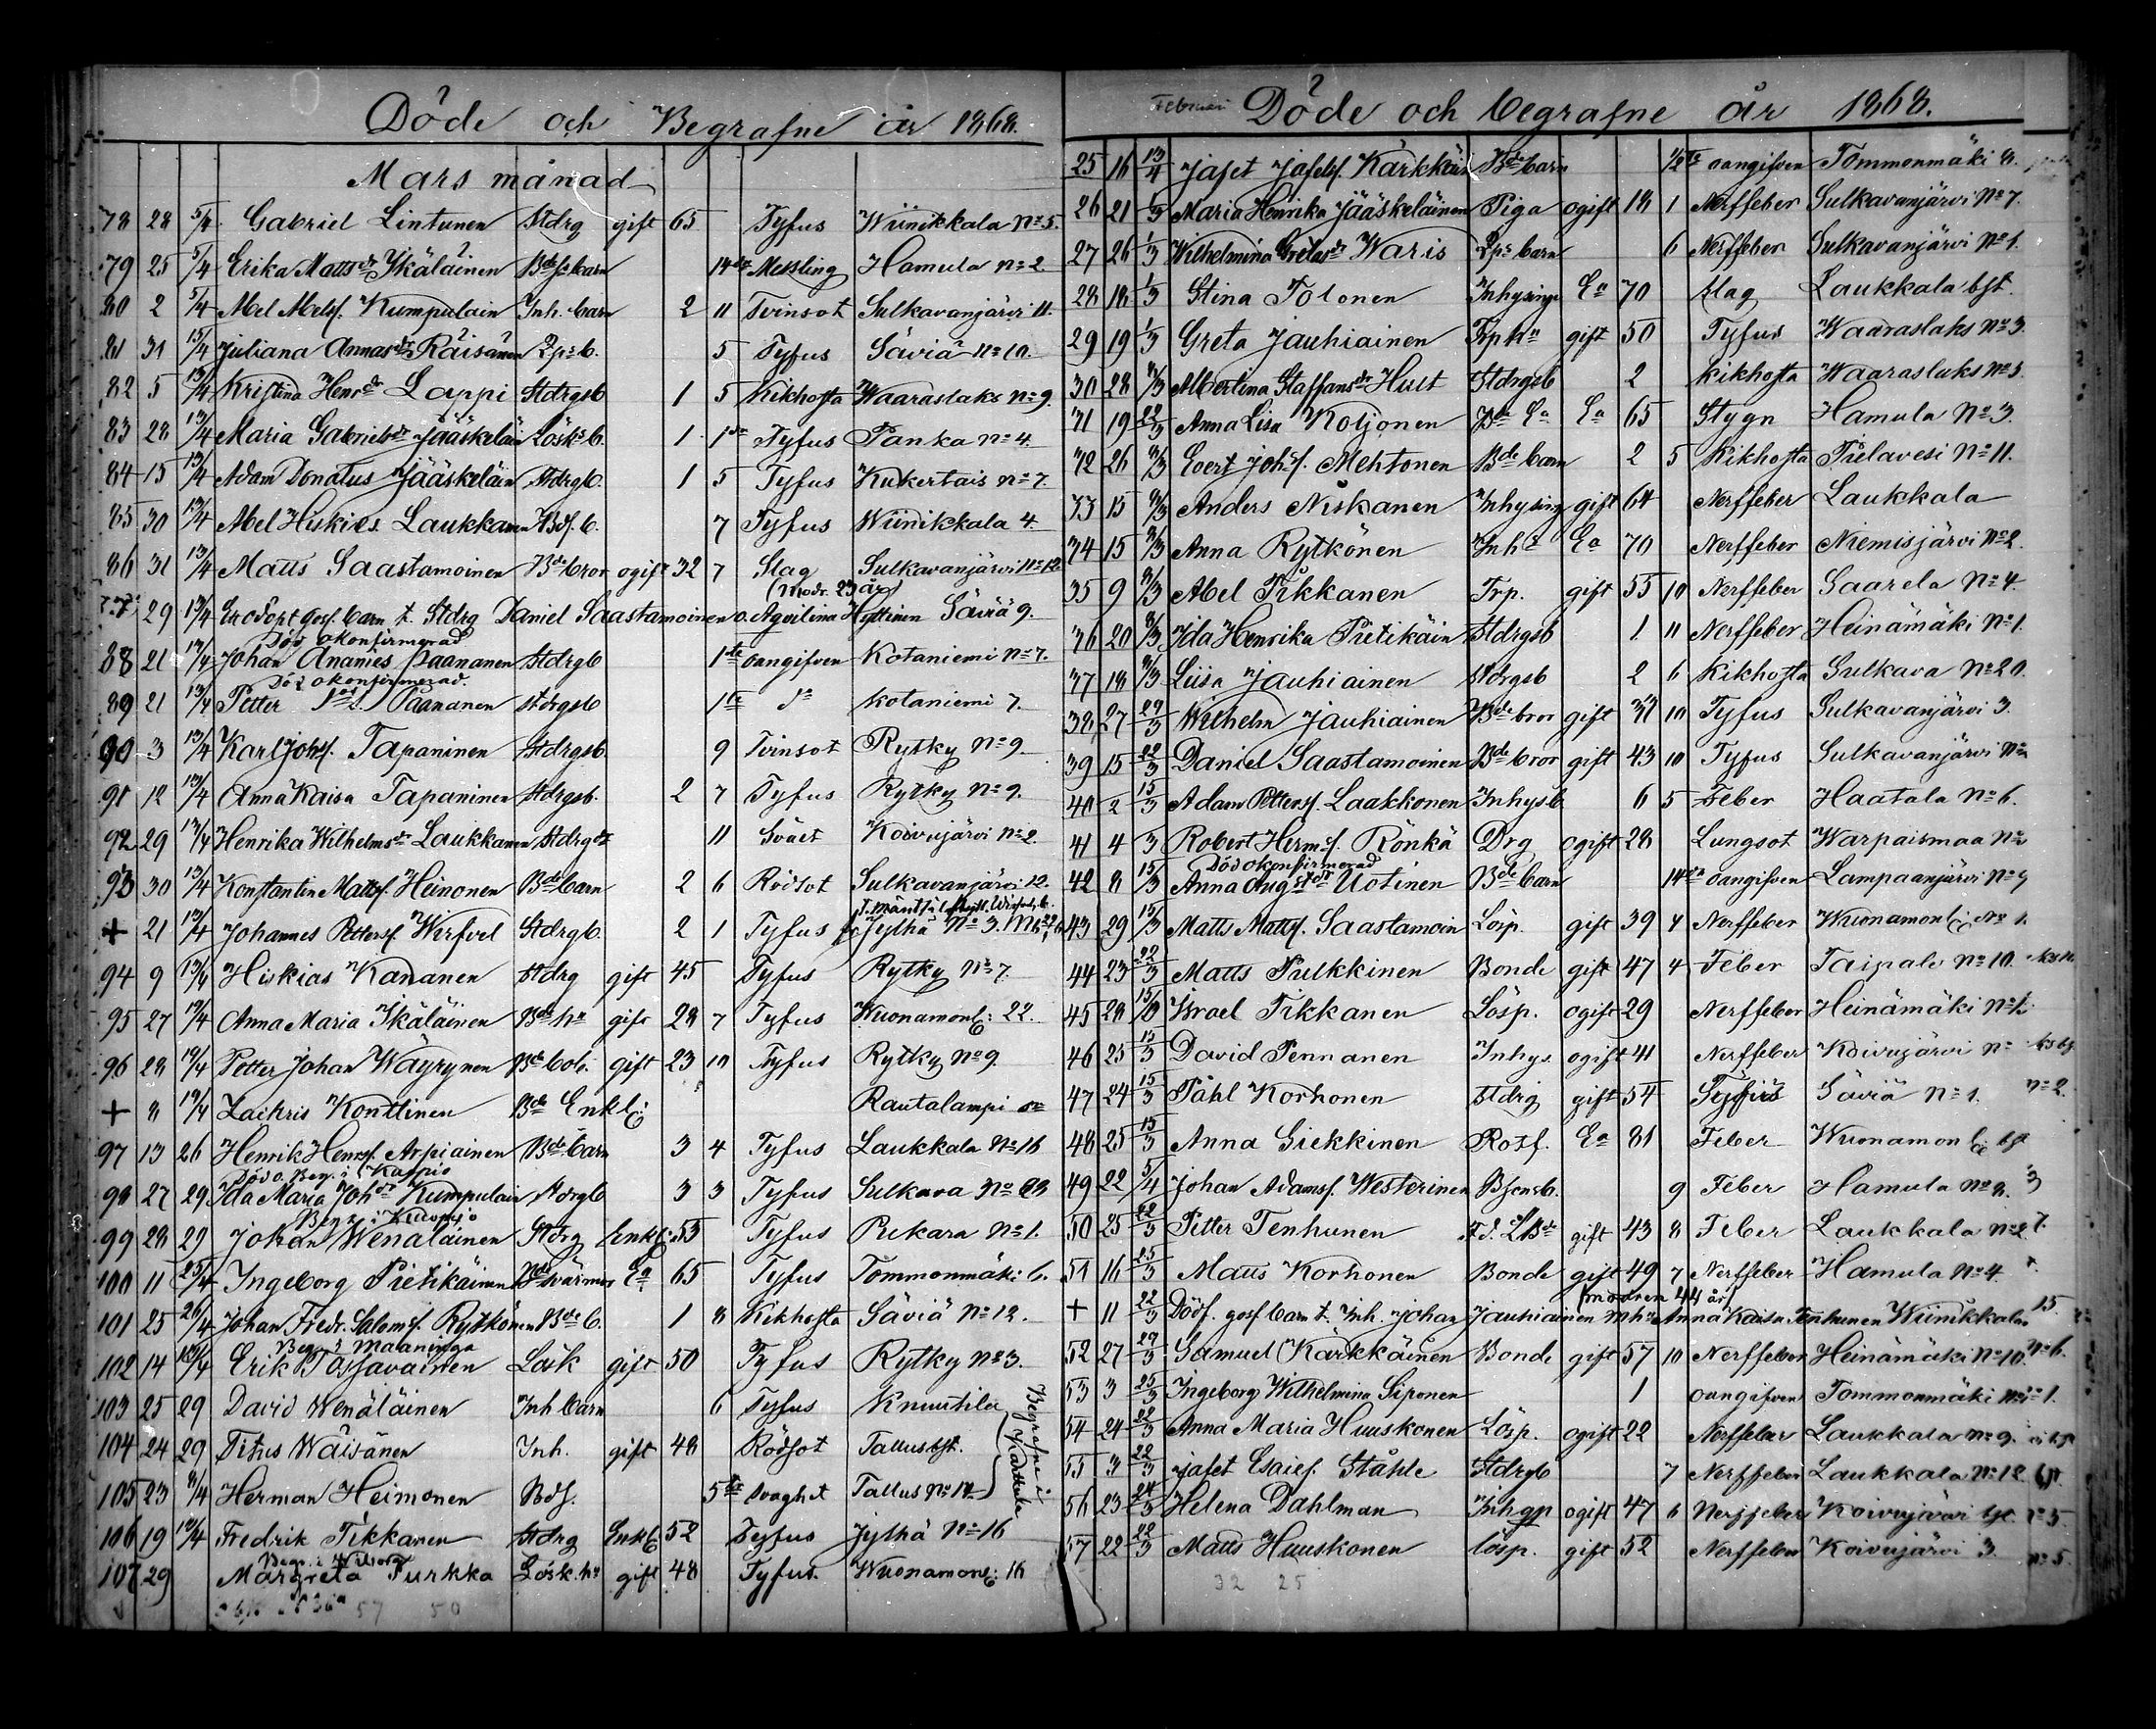 Döde och Begrafne år 1868.
Mars månad
78 28 5/4 Gabriel Lintunen Stdrg gift 65 Tyfus Wiinikkala No 5.
79 25 5/4 Erika Matts dr Ikäläinen Bdes barn 14 Messling Hamula no 2
80 2 5/4 Abel Abelsf. Kumpulain Inh. barn 2 11 Tvinsot Sulkavanjärvi 11.
81 31 13/4 Juliana Annas dr Räisänen Lps b. 5 Tyfus Säviä no 10.
82 5 13/4 Kristina Henr dr Lappi Stdrgsb 1 5 Kikhosta Waaraslaks no 9.
83 28 13/4 Maria Gabriels dr Jääskeläin Lösk. b. 1 1 Tyfus Panka no 4.
84 15 13/4 Adam Donatus Jääskeläin Stdrgb. 1 5 Tyfus Kukertais no 7.
85 30 13/4 Abel Hiskies Laukkanen Bdf. b. 7 Tyfus Wiinikkala 4.
86 31 13/4 Matts Saastamoinen Bde bror ogift 32 7 Slag Sulkavanjärvi no 12
(Modr. 23 år)
29 13/4 barn t. Stdrg Daniel Saastamoinen o. Aqvilina Hyttinen Säviä 9.
Död okonfirmerad
88 21 13/4 Johan Ananies Paananen Stdrgb 1 oangifven Kotaniemi no 7.
Död okonfirmerad.
89 21 13/4 Petter Paananen Stdrgsb 1 Do Kotaniemi 7.
90 3 13/4 Karl Johsf. Tapaninen Stdrgsb. 9 Tvinsot Rytky No 9.
91 12 13/4 Anna Kaisa Tapaninen Stdrgsb. 2 7 Tyfus Rytky no 9.
92 29 13/4 Henrika Wilhelms dr Laukkanen Stdrg dr 11 Svält Koivujärvi no 2.
93 30 13/4 Konstantin Mattsf. Heinonen Bde barn 2 6 Rödsot Sulkavanjärvi 12.
+ 21 13/4 Johannes Pettersf. Wirfvel Stdrgb. 2 1 Tyfus Jylhä No 3.
94 9 13/4 Hiskias Kananen Stdrg gift 45 Tyfus Rytky No 7
95 27 19/4 Anna Maria Ikäläinen Bde ha gift 28 7 Tyfus Wuonamonl: 22.
96 28 19/4 Petter Johan Wäyrynen Bde gift 23 10 Tyfus Rytky no 9.
+ 8 19/4 Zachris Konttinen Bde Enkl: Rautalampi
97 13 26 Henrik Henrsf. Arpiainen Bde barn 3 4 Tyfus Laukkala No 16
Död o. Begr. i Kuopio
98 27 29 Ida Maria Joh dr Kumpulain Stdrgb 3 3 Tyfus Sulkava No 23
Begr. i Kuopio
99 28 29 Johan Wenäläinen Stdrg Enkl: 53 Tyfus Pukara No 1.
100 11 25/4 Ingeborg Pietikäinen Bde svärmor Ea 65 Tyfus Tommonmäki 6.
101 25 26/4 Johan Fredr. Salomsf. Rytkönen Bde b. 1 8 Kikhosta Säviä no 12.
Begr. i Maaninga
102 14 19/4 Erik Tossavainen Lösk gift 50 Tyfus Rytky No 3.
103 25 29 David Wenäläinen Inh barn 6 Tyfus Knuutila
104 24 29 Titus Wäisänen Inh. gift 48 Rödsot Tallus bst.
Begrafne i Karttula
105 23 Herman Heimonen Bdf. 5 Svaghet Tallus No 14
106 19 19/4 Fredrik Tikkanen Stdrg Enkl 52 Tyfus Jylhä No 16
Begr. i Wiborg
107 29 Margreta Turkka Lösk. ha gift 48 Tyfus Wuonamonl: 16
57 50
Februari
Döde och begrafne år 1868.
25 16 13/4 Jafet Jafetsf. Kärkkäin Bde barn 1/2 oangifven Tommonmäki 8.
26 21 Maria Henrika Jääskeläinen Piga ogift 18 1 Nerffeber Sulkavanjärvi No 7.
27 26 1/3 Wilhelmina Gretas dr Waris Lps barn 6 Nerffeber Sulkavanjärvi No 1.
28 18 1/3 Stina Tolonen Inhysing Ea 70 Slag Laukkala bst.
29 19 1/3 Greta Jauhiainen Trp ha gift 50 Tyfus Waaraslaks No 3.
30 28 8/3 Albertina Staffans dr Hult Stdrgsb 2 Kikhosta Waaraslaks No 3.
31 19 22/3 Anna Lisa Koljonen Bde Ea Ea 65 Stygn Hamula No 3.
32 26 8/3 Evert Johsf. Mehtonen Bde barn 2 5 Kikhosta Pielavesi No 11.
33 15 8/3 Anders Niskanen Inhysing gift 64 Nerffeber Laukkala
34 15 8/3 Anna Rytkönen Inh Ea 70 Nerffeber Niemisjärvi No 2.
35 9 8/3 Abel Tikkanen Trp. gift 55 10 Nerffeber Saarela No 4.
36 20 8/3 Ida Henrika Pietikäin Stdrgsb 1 11 Nerffeber Heinämäki No 1.
37 18 8/3 Liisa Jauhiainen Stdrgsb 2 6 Kikhosta Sulkava No 20.
38 27 29/3 Wilhelm Jauhiainen Bde bror gift 10 Tyfus Sulkavanjärvi 3.
39 15 22/3 Daniel Saastamoinen Bde bror gift 43 10 Tyfus Sulkavanjärvi No
40 2 15/3 Adam Pettersf. Laakkonen Inhysb 6 5 Feber Haatala No 6.
41 4 3 Robert Hermsf. Rönkä Drg ogift 28 Lungsot Warpaismaa No
Död okonfirmerad
42 8 15/3 Anna Aug dr Uotinen Bde barn 14 oangifven Lampaanjärvi No 4
43 29 15/3 Matts Mattsf. Saastamoin Lösp. gift 39 4 Nerffeber Wuonamonl: No 1.
44 23 22/3 Matts Pulkkinen Bonde gift 47 4 Feber Taipale No 10.
45 28 Israel Tikkanen Lösp. ogift 29 Nerffeber Heinämäki No
46 25 15/3 David Pennanen Inhys. ogift 41 Nerffeber Koivujärvi No
47 24 15/3 Påhl Korhonen Stdrg gift 54 Tyfus Säviä No 1.
48 25 15/3 Anna Siekkinen Rotf. Ea 81 Feber Wuonamonl: bst
49 22 5/4 Johan Adamsf. Westerinen 9 Feber Hamula No 8.
50 25 22/3 Petter Tenhunen F.d. LBde gift 43 8 Feber Laukkala No 2
51 16 25/3 Matts Korhonen Bonde gift 49 7 Nerffeber Hamula No 4.
(modren 44 år)
+ 11 22/3 Dödf. gosf. barn t. Inh. Johan Jauhiainen o h: Anna Kaisa Tenhunen Wiinikkala
52 27 29/3 Samuel Kärkkäinen Bonde gift 57 10 Nerffeber Heinämäki No 10.
53 3 25/3 Ingeborg Wilhelmina Siponen 1 oangifven Tommonmäki
54 24 22/3 Anna Maria Huuskonen Lösp. ogift 22 Nerffeber Laukkala No 9.
55 3 22/3 Jafet Esaief. Ståhle Stdrgb 7 Nerffeber Laukkala No 12
56 23 24/3 Helena Dahlman ogift 47 6 Nerffeber Koivujärvi bst.
57 22 22/3 Matts Huuskonen Lösp. gift 52 Nerffeber Koivujärvi 3.
32 25